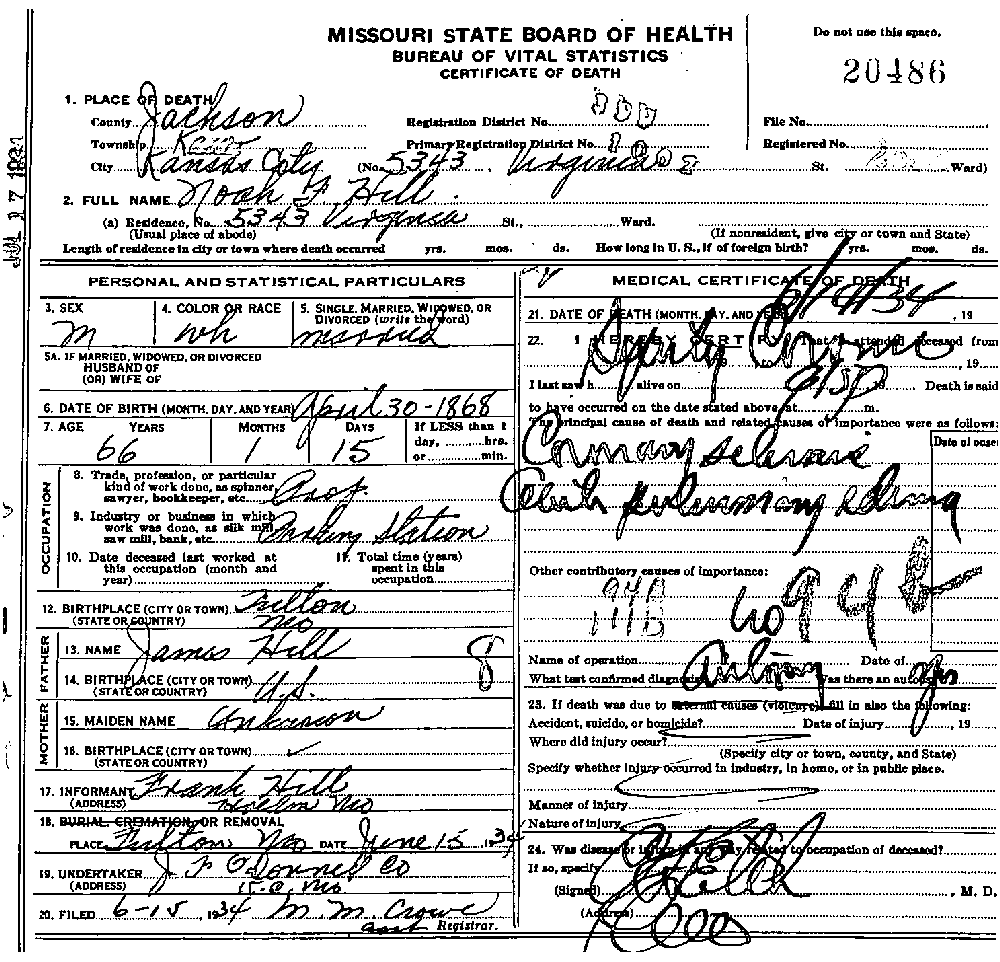 MISSOURI STATE BOARD OF HEALTH
BUREAU OF VITAL STATISTICS
CERTIFICATE OF DEATH
Do not use this space.
20486
1. PLACE OF DEATH
County Jackson Registration District No. File No.
Township Kaw Primary Registration District No. Registered No.
City Kansas City (No. 5343 Virginia St. Ward)
2. FULL NAME Noah F Hill
(a) Residence, No. 5343 Virginia St., Ward.
(Usual place of abode) (If nonresident, give city or town and State)
Length of residence in city or town where death occurred yrs. mos. ds. How long in U. S., if of foreign birth? yrs. mos. ds.
PERSONAL AND STATISTICAL PARTICULARS
3. SEX 4. COLOR OR RACE 5. SINGLE, MARRIED, WIDOWED, OR
DIVORCED (write the word)
M wh married
5A. IF MARRIED, WIDOWED, OR DIVORCED
HUSBAND OF
(OR) WIFE OF
6. DATE OF BIRTH (MONTH, DAY, AND YEAR) April 30-1868
7. AGE YEARS MONTHS DAYS If LESS than 1
day, hrs.
or min.
66 1 15
OCCUPATION
8. Trade, profession, or particular
kind of work done, as spinner,
sawyer, bookkeeper, etc. Prop.
9. Industry or business in which
work was done, as silk mill,
saw mill, bank, etc. Parking Station
10. Date deceased last worked at
this occupation (month and
year)
11. Total time (years)
spent in this
occupation
12. BIRTHPLACE (CITY OR TOWN) Fulton
(STATE OR COUNTRY) Mo
FATHER
13. NAME James Hill
14. BIRTHPLACE (CITY OR TOWN) U.S.
(STATE OR COUNTRY)
8
MOTHER
15. MAIDEN NAME Unknown
16. BIRTHPLACE (CITY OR TOWN)
(STATE OR COUNTRY)
17. INFORMANT Frank Hill
(ADDRESS) Mo
18. BURIAL, CREMATION, OR REMOVAL
PLACE Fulton Mo DATE June 15 1934
19. UNDERTAKER J F O'Donnell Co
(ADDRESS) K.C. Mo
20. FILED 6-15 1934 M. M. Crowe
Asst Registrar.
MEDICAL CERTIFICATE OF DEATH
21. DATE OF DEATH (MONTH, DAY, AND YEAR) 6/14/34, 19
22. I HEREBY CERTIFY, That I attended deceased from
Deputy Coroner
, 19
I last saw h alive on 19 Death is said
to have occurred on the date stated above, at m.
The principal cause of death and related causes of importance were as follows:
Date of onset
Coronary sclerosis
Acute pulmonary edema
Other contributory causes of importance:
94B
111B
no 94b
Name of operation Date of
What test confirmed diagnosis? Autopsy Was there an autopsy? yes
23. If death was due to external causes (violence) fill in also the following:
Accident, suicide, or homicide? Date of injury , 19
Where did injury occur?
(Specify city or town, county, and State)
Specify whether injury occurred in industry, in home, or in public place.
Manner of injury
Nature of injury
24. Was disease or injury in any way related to occupation of deceased?
If so, specify
(Signed) , M. D.
(Address)